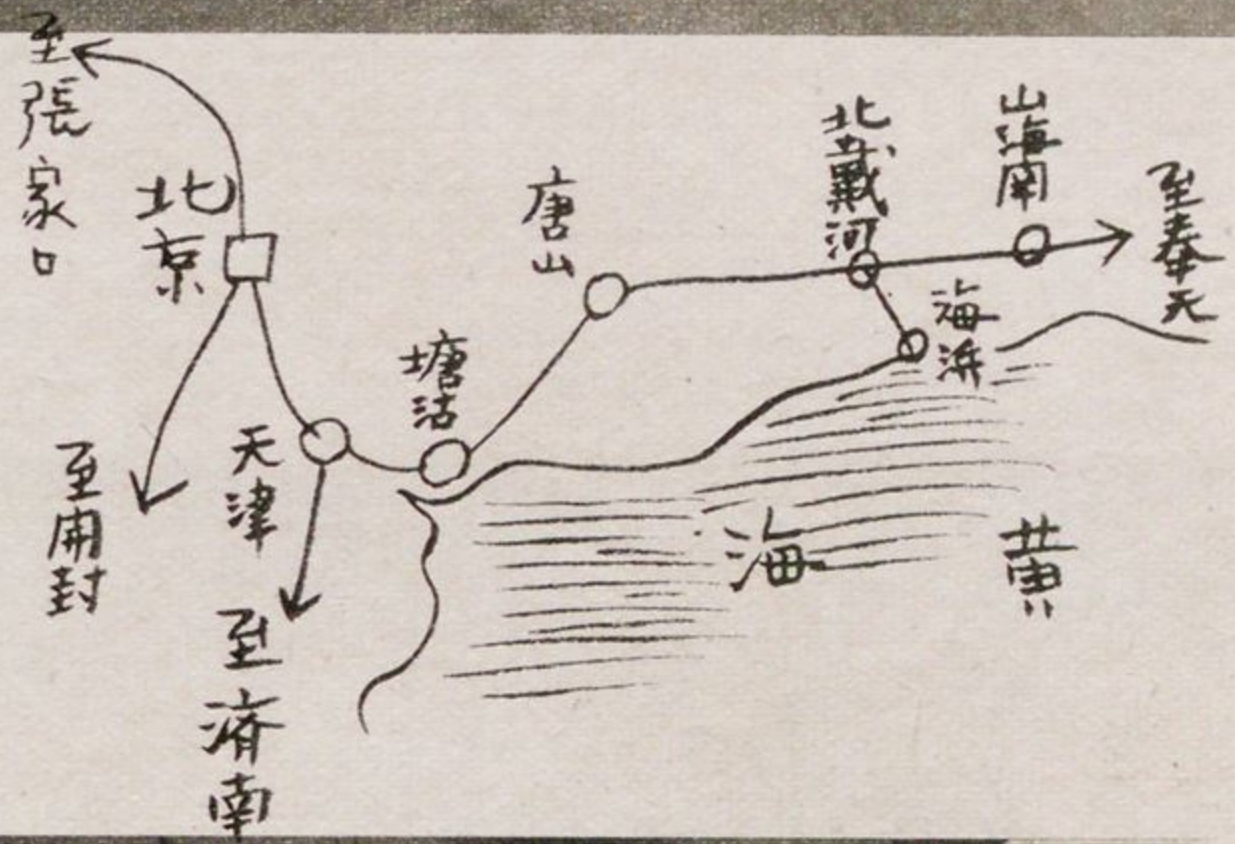 至張家口
北京
唐山
北戴河
山海関
至奉天
海浜
塘沽
天津
至開封
至済南
黄海